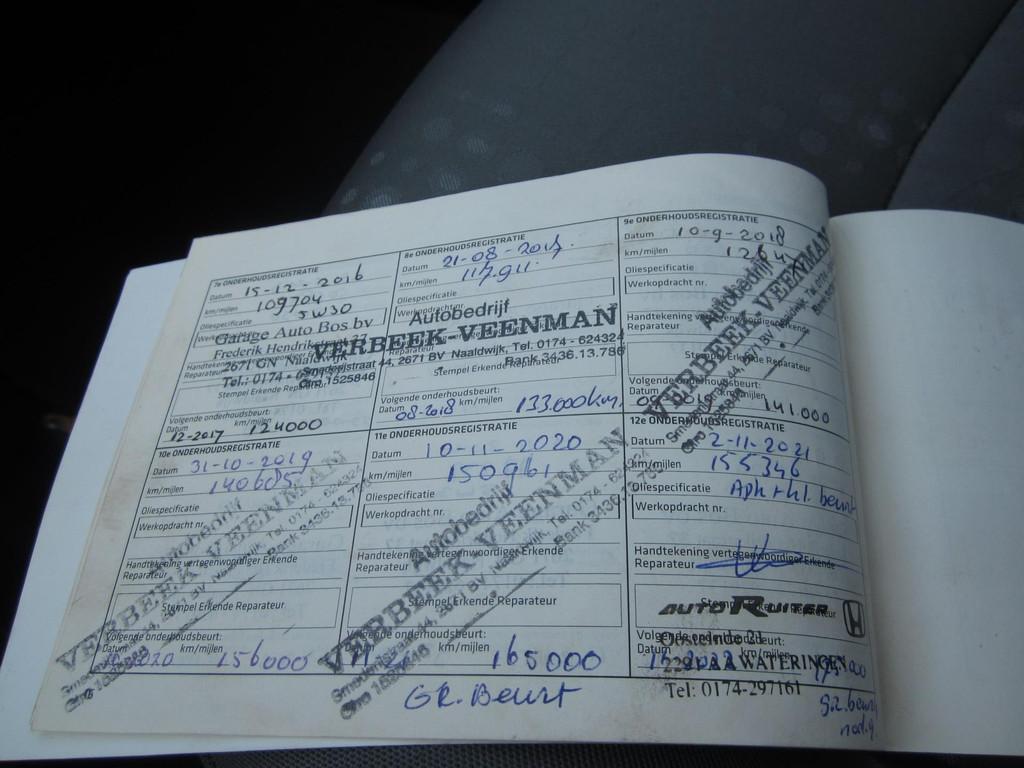 7e ONDERHOUDSREGISTRATIE
Datum 15-12-2016
km/mijlen 109704
Oliespecificatie 5W30
Garage Auto Bos bv
Frederik
2671 GN
Tel.: 0174 -
Stempel Erkende Reparateur
Volgende onderhoudsbeurt:
Datum km/mijlen
12-2017 124000
8e ONDERHOUDSREGISTRATIE
Datum 21-08-2017
km/mijlen 117.911
Oliespecificatie
Werkopdracht nr.
Autobedrijf
VERBEEK-VEENMAN
Smederijstraat 44, 2671 BV Naaldwijk, Tel. 0174 - 624324
Giro 1525846 Bank 3436.13.786
Stempel Erkende Reparateur
Volgende onderhoudsbeurt:
Datum 08-2018 km/mijlen 133.000km.
9e ONDERHOUDSREGISTRATIE
Datum 10-9-2018
km/mijlen
Oliespecificatie
Werkopdracht nr.
Handtekening vertegenwoordiger Erkende
Reparateur
Autobedrijf
VERBEEK-VEENMAN
Stempel Erkende Reparateur
Volgende onderhoudsbeurt:
Datum km/mijlen 141.000
10e ONDERHOUDSREGISTRATIE
Datum 31-10-2019
km/mijlen 140605
Oliespecificatie
Werkopdracht nr.
Autobedrijf
VERBEEK-VEENMAN
Handtekening vertegenwoordiger Erkende
Reparateur
Stempel Erkende Reparateur
Volgende onderhoudsbeurt:
Datum 2020 km/mijlen 156000
11e ONDERHOUDSREGISTRATIE
Datum 10-11-2020
km/mijlen 150961
Oliespecificatie
Werkopdracht nr.
Autobedrijf
VERBEEK-VEENMAN
Handtekening vertegenwoordiger Erkende
Reparateur
Stempel Erkende Reparateur
Volgende onderhoudsbeurt:
km/mijlen 165000
GR. Beurt
12e ONDERHOUDSREGISTRATIE
Datum 2-11-2021
km/mijlen 155346
Oliespecificatie Apk + kl. beurt
Werkopdracht nr.
Handtekening vertegenwoordiger Erkende
Reparateur
Stempel Erkende Reparateur
AUTO RUITER
Oosteinde 21
Volgende onderhoudsbeurt:
Datum km/mijlen
WATERINGEN
Tel: 0174-297161
gr. beurt
nodig